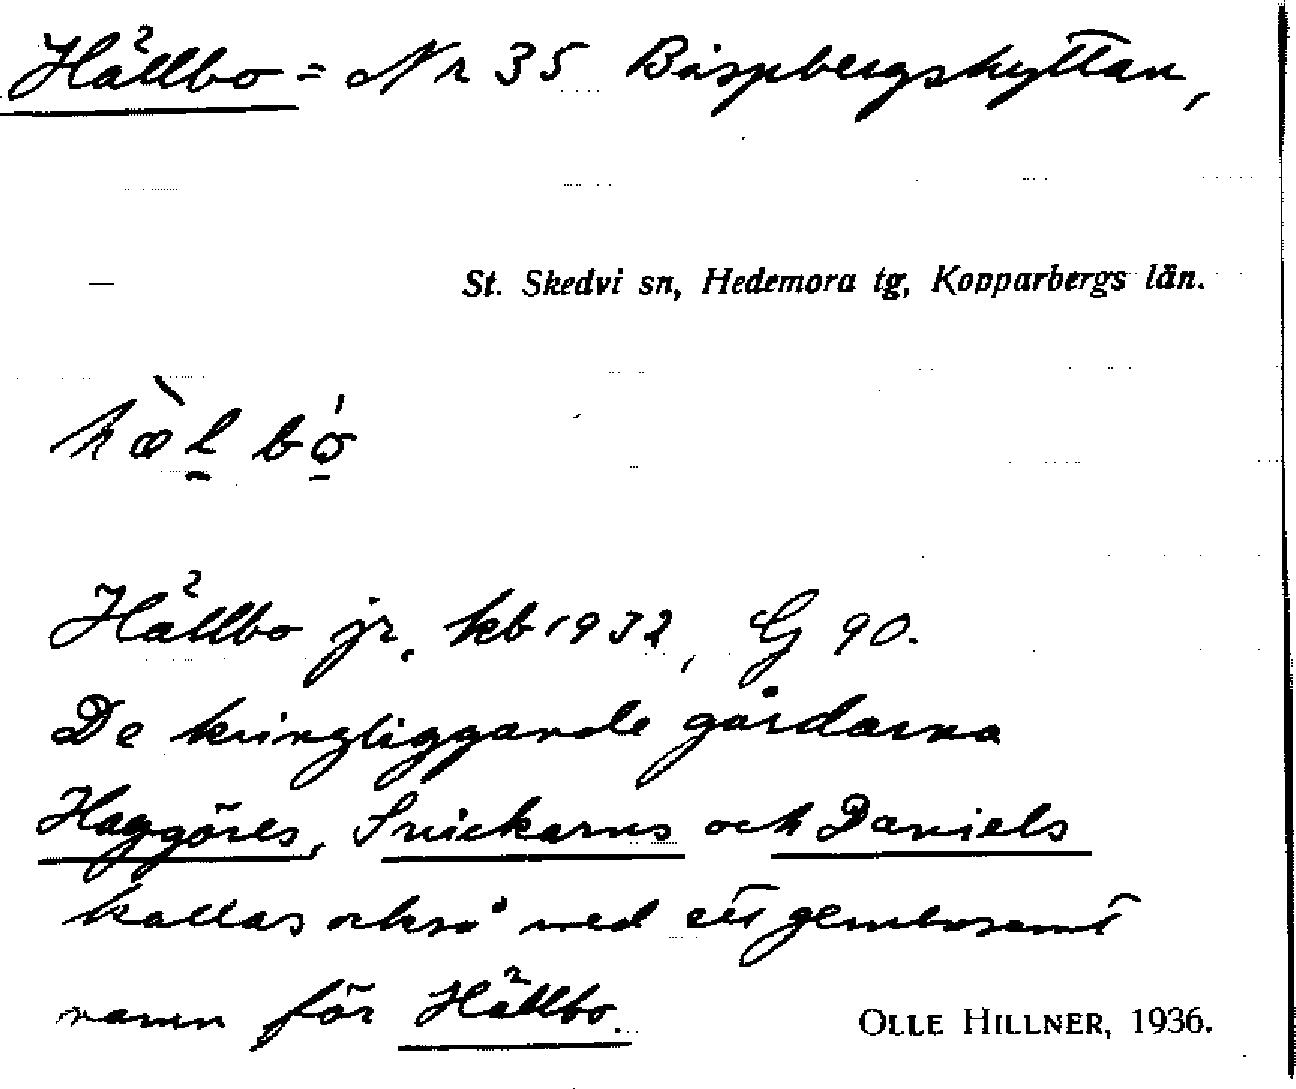 Hällbo = Nr 35 Bispbergshyttan,
St. Skedvi sn, Hedemora tg, Kopparbergs län.
hæ̀l bó̠
Hällbo jr, kb 1932, G 90.
De kringliggande gårdarna
Haggöres, Snickarns och Daniels
kallas också med ett gemensamt
namn för Hällbo.
OLLE HILLNER, 1936.